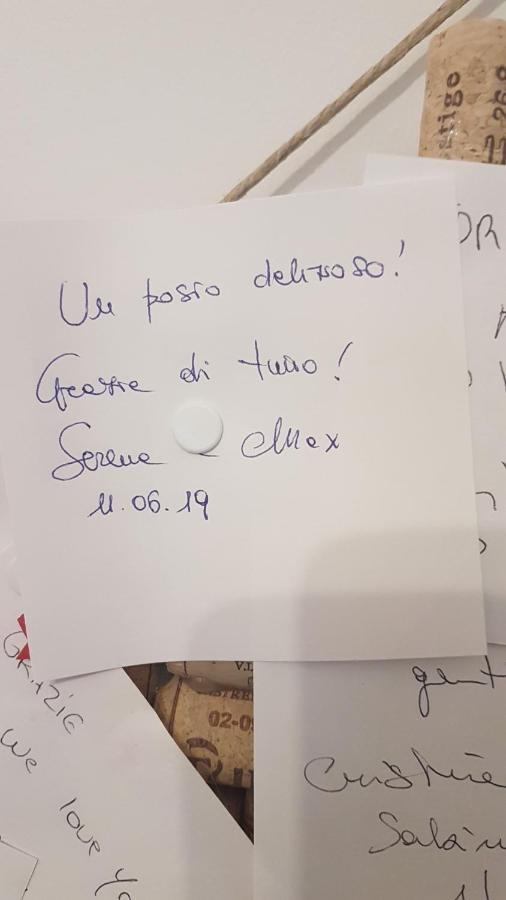 Un posto delizioso!
Grazie di tutto!
Serena e Max
11.06.19
GRAZIE
We
love
gent
Cristine
02-0